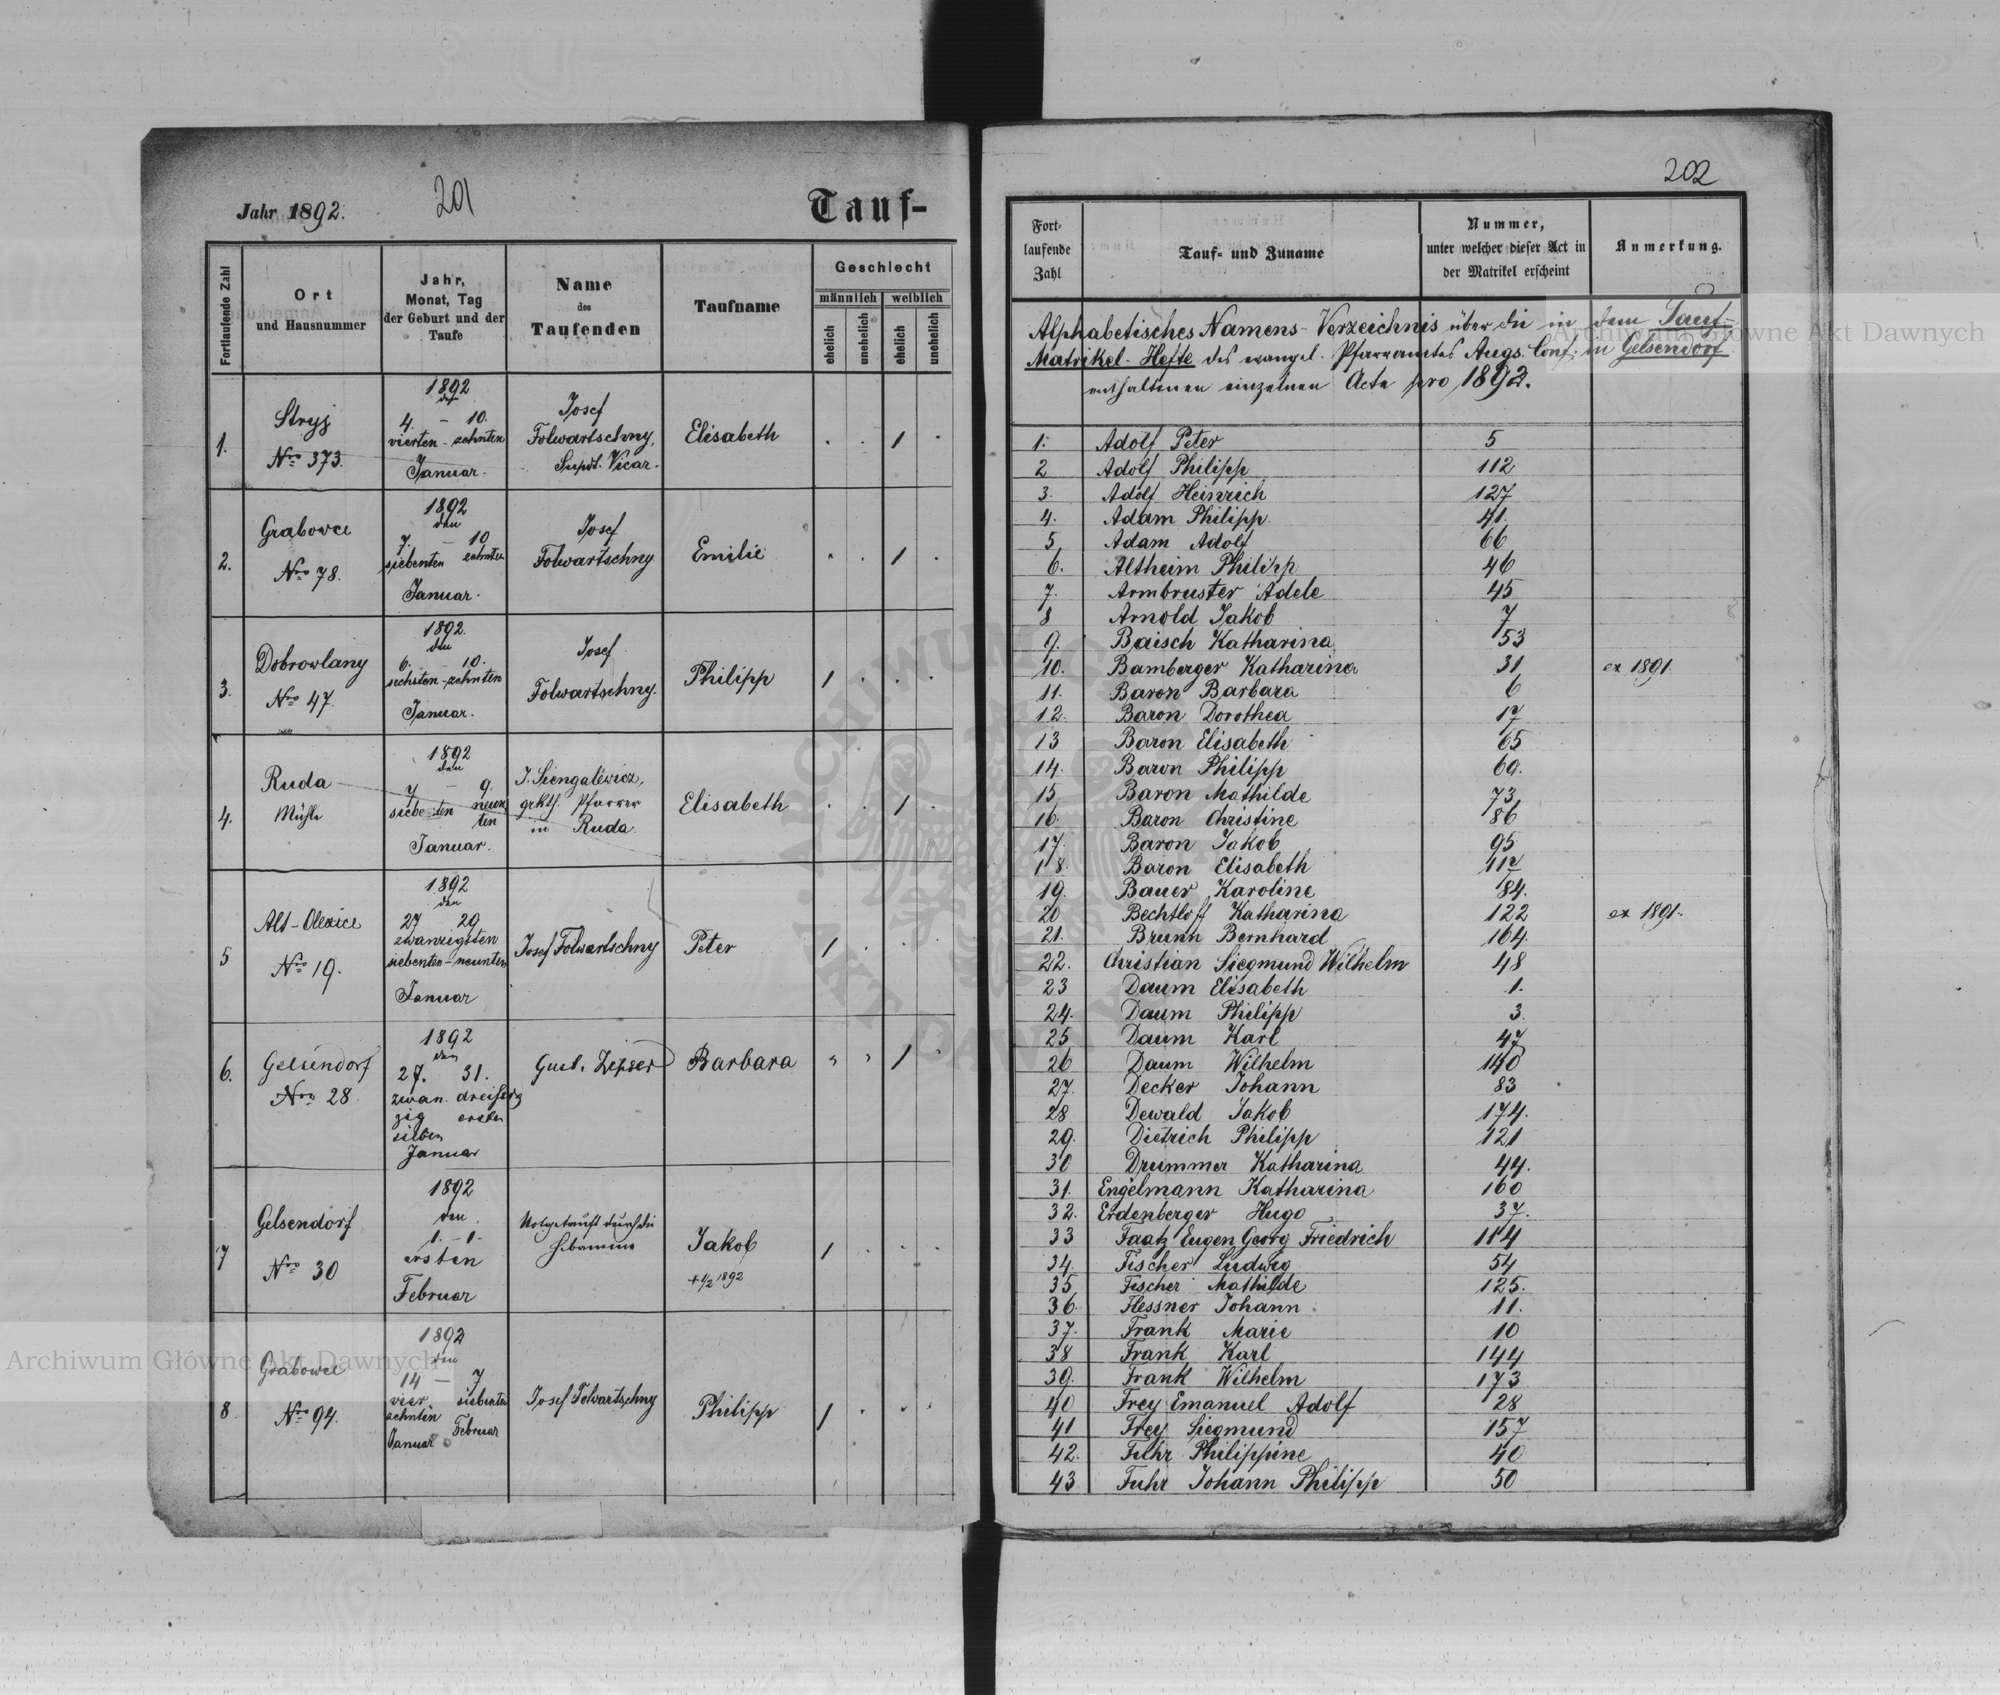 Jahr 1892.
201
Tauf-
Fortlaufende Zahl
Ort
und Hausnummer
Jahr,
Monat, Tag
der Geburt und der
Taufe
Name
des
Taufenden
Taufname
Geschlecht
männlich
weiblich
ehelich
unehelich
ehelich
unehelich
1.
Stryj
Nro 373.
1892
den
4. - 10.
vierten - zehnten
Januar.
Josef
Folwartschny,
Supdt. Vicar.
Elisabeth
1
2.
Grabowce
Nro 78.
1892
den
7. - 10
siebenten zehnten
Januar.
Josef
Folwartschny
Emilie
1
3.
Dobrowlany
Nro 47.
1892.
den
6. - 10.
sechsten - zehnten
Januar.
Josef
Folwartschny.
Philipp
1
4.
Ruda
Mühle
1892
den
7 - 9.
siebenten neun
ten
Januar.
grkth. Pfarrer
in Ruda.
Elisabeth
1
5
Alt-Olexice
Nro 19.
1892
den
27 29
zwanzigsten
siebenten - neunten
Januar
Josef Folwartschny
Peter
1
6.
Gelsendorf
Nro 28
1892
den
27. 31.
zwan dreißig
zig ersten
sieben
Januar
Gust. Zipser
Barbara
1
7
Gelsendorf
Nro 30
1892
den
1. - 1.
ersten
Februar
Notgetauft durch die
Hebamme
Jakob
+ 1/2 1892
1
8
Grabowce
Nro 94.
1892
den
14 - 7
vier siebenten
zehnten
Januar Februar
Josef Folwartschny
Philipp
1
202
Fort-
laufende
Zahl
Tauf- und Zuname
Nummer,
unter welcher dieser Act in
der Matrikel erscheint
Anmerkung.
Alphabetisches Namens-Verzeichnis über die in dem Tauf-
Matrikel-Hefte des evangel. Pfarramtes Augs. Conf. in Gelsendorf
enthaltenen einzelnen Acte pro 1892.
1. Adolf Peter 5
2 Adolf Philipp 112
3. Adolf Heinrich 127
4. Adam Philipp. 41.
5 Adam Adolf 66
6. Altheim Philipp 46
7. Armbruster Adele 45
8 Arnold Jakob 7
9. Baisch Katharina 53
10. Bamberger Katharina 31 ex 1891.
11. Baron Barbara 6
12. Baron Dorothea 17
13 Baron Elisabeth 65
14. Baron Philipp 69.
15 Baron Mathilde 73
16. Baron Christine 86
17. Baron Jakob 95
18. Baron Elisabeth 117
19. Bauer Karoline 84.
20 Bechtloff Katharina 122 ex 1891.
21. Brunn Bernhard 164.
22. Christian Siegmund Wilhelm 48
23 Daum Elisabeth 1.
24. Daum Philipp 3.
25 Daum Karl 47
26 Daum Wilhelm 140
27. Decker Johann 83
28 Dewald Jakob 174.
29. Dietrich Philipp 121
30 Drummer Katharina 44.
31. Engelmann Katharina 160
32. Erdenberger Hugo 37.
33 Faatz Eugen Georg Friedrich 114
34. Fischer Ludwig 54
35 Fischer Mathilde 125.
36. Flessner Johann 11.
37. Frank Marie 10
38 Frank Karl 144
39. Frank Wilhelm 173
40 Frey Emanuel Adolf 28
41 Frey Siegmund 157
42. Fuhr Philippine 40
43 Fuhr Johann Philipp 50
Archiwum Główne Akt Dawnych
Archiwum Główne Akt Dawnych